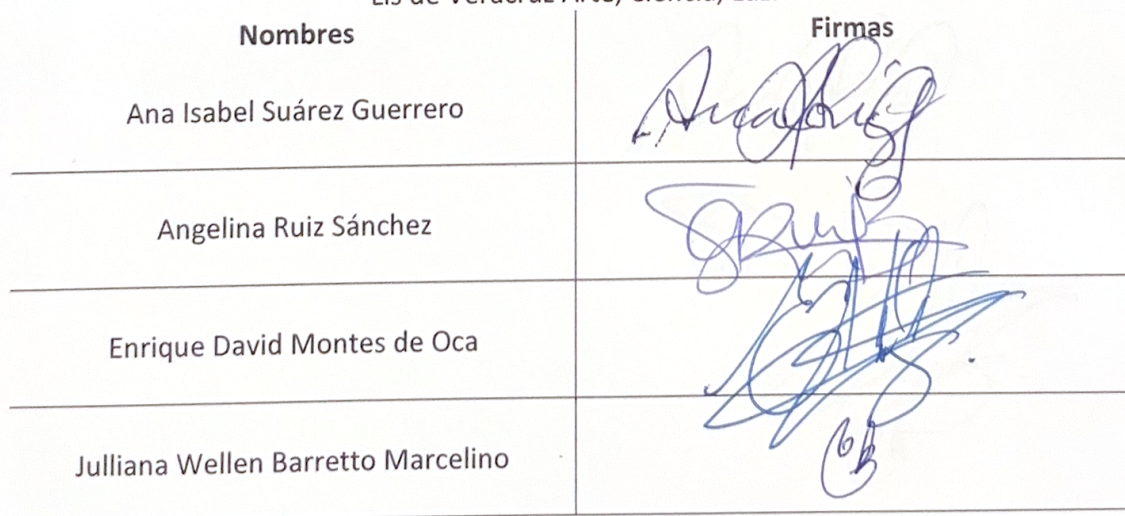 Lis de Veracruz Arte, Ciencia, Luz.
Nombres Firmas
Ana Isabel Suárez Guerrero
Angelina Ruiz Sánchez
Enrique David Montes de Oca
Julliana Wellen Barretto Marcelino